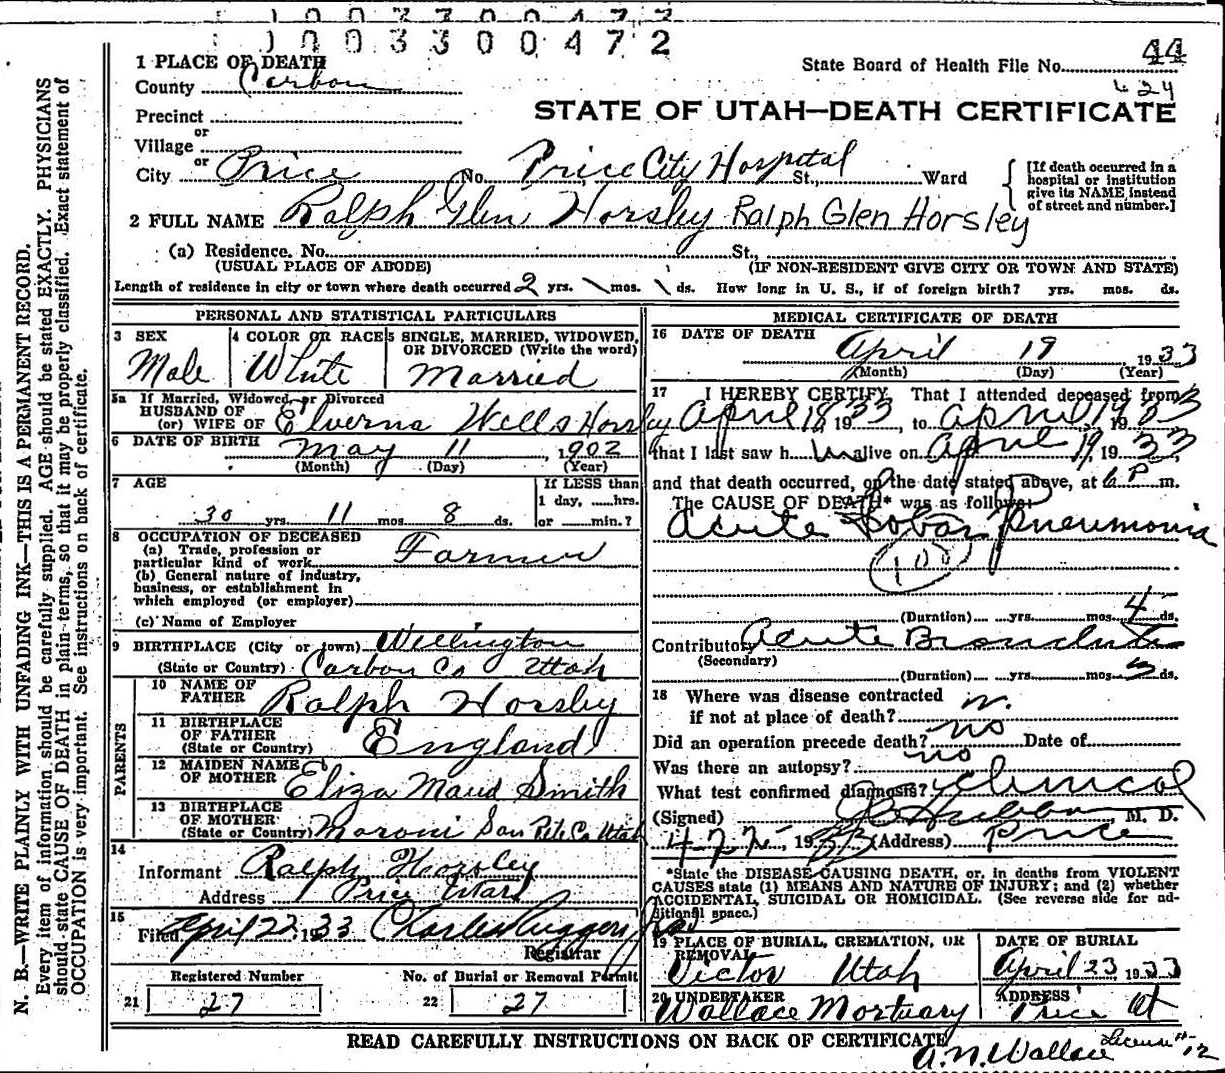 1003300472
1003300472
1 PLACE OF DEATH
County Carbon
State Board of Health File No. 44
624
Precinct
or
Village
or
STATE OF UTAH—DEATH CERTIFICATE
City Price No. Price City Hospital St., Ward
[If death occurred in a hospital or institution give its NAME instead of street and number.]
2 FULL NAME Ralph Glen Horsley Ralph Glen Horsley
(a) Residence. No. St.,
(USUAL PLACE OF ABODE) (IF NON-RESIDENT GIVE CITY OR TOWN AND STATE)
Length of residence in city or town where death occurred 2 yrs. \ mos. \ ds. How long in U. S., if of foreign birth? yrs. mos. ds.
PERSONAL AND STATISTICAL PARTICULARS
3 SEX Male
4 COLOR OR RACE White
5 SINGLE, MARRIED, WIDOWED, OR DIVORCED (Write the word) Married
5a If Married, Widowed, or Divorced
HUSBAND OF
(or) WIFE OF Elverna Wells Horsley
6 DATE OF BIRTH May 11, 1902
(Month) (Day) (Year)
7 AGE
30 yrs. 11 mos. 8 ds.
If LESS than
1 day, ......hrs.
or ......min.?
8 OCCUPATION OF DECEASED
(a) Trade, profession or
particular kind of work Farmer
(b) General nature of industry,
business, or establishment in
which employed (or employer)
(c) Name of Employer
9 BIRTHPLACE (City or town) Wellington
(State or Country) Carbon Co Utah
PARENTS
10 NAME OF
FATHER Ralph Horsley
11 BIRTHPLACE
OF FATHER
(State or Country) England
12 MAIDEN NAME
OF MOTHER Eliza Maud Smith
13 BIRTHPLACE
OF MOTHER
(State or Country) Maroni San Pete Co. Utah
14
Informant Ralph Horsley
Address Price Utah
15
Filed April 22, 1933
Registrar
Registered Number
21 27
No. of Burial or Removal Permit
22 27
MEDICAL CERTIFICATE OF DEATH
16 DATE OF DEATH
April 19 1933
(Month) (Day) (Year)
17 I HEREBY CERTIFY, That I attended deceased from
April 18 1933, to April 19 1933
that I last saw h im alive on April 19, 1933,
and that death occurred, on the date stated above, at 6 P. m.
The CAUSE OF DEATH* was as follows:
Acute Lobar Pneumonia
108
(Duration) yrs. mos. 4 ds.
Contributory Acute Bronchitis
(Secondary)
(Duration) yrs. mos. ds.
18 Where was disease contracted
if not at place of death?
Did an operation precede death? no Date of
Was there an autopsy? no
What test confirmed diagnosis? Clinical
(Signed) M. D.
1933 (Address) Price
*State the DISEASE CAUSING DEATH, or, in deaths from VIOLENT
CAUSES state (1) MEANS AND NATURE OF INJURY; and (2) whether
ACCIDENTAL, SUICIDAL OR HOMICIDAL. (See reverse side for ad-
ditional space.)
19 PLACE OF BURIAL, CREMATION, OR
REMOVAL
Victor Utah
DATE OF BURIAL
April 23 1933
20 UNDERTAKER
Wallace Mortuary
ADDRESS
Price Ut
READ CAREFULLY INSTRUCTIONS ON BACK OF CERTIFICATE
A. N. Wallace License # 12
N. B.—WRITE PLAINLY WITH UNFADING INK—THIS IS A PERMANENT RECORD.
Every item of information should be carefully supplied. AGE should be stated EXACTLY. PHYSICIANS
should state CAUSE OF DEATH in plain terms, so that it may be properly classified. Exact statement of
OCCUPATION is very important. See instructions on back of certificate.